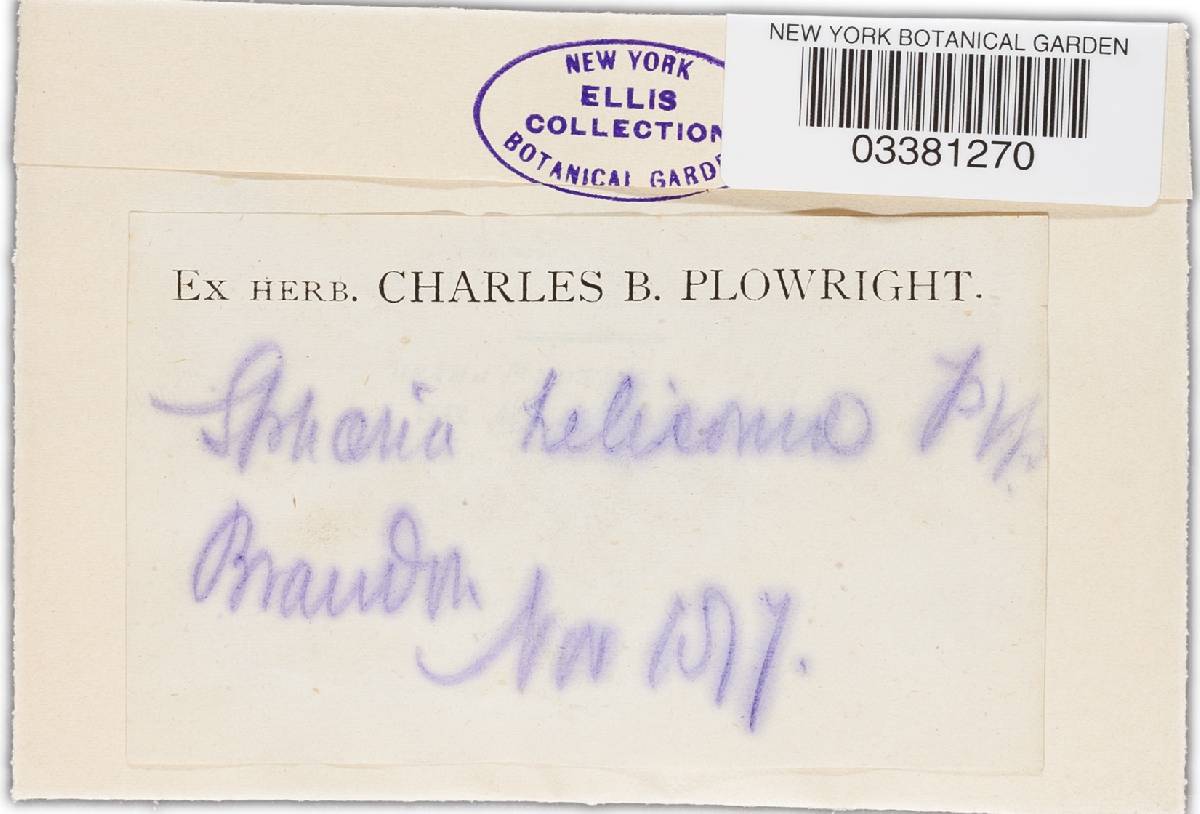 NEW YORK BOTANICAL GARDEN
03381270
NEW YORK
ELLIS
COLLECTION
BOTANICAL GARDE
EX HERB. CHARLES B. PLOWRIGHT.
Sphæria helicoma
Brandon
Nov 1877.